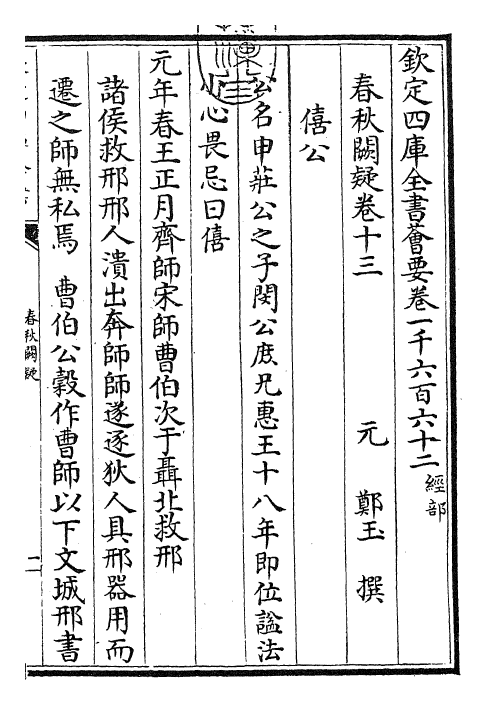 欽定四庫全書薈要卷一千六百六十二 經部
春秋闕疑卷十三 元 鄭玉 撰
僖公
公名申莊公之子閔公庶兄惠王十八年即位諡法
小心畏忌曰僖
元年春王正月齊師宋師曹伯次于聶北救邢
諸侯救邢邢人潰出奔師師遂逐狄人具邢器用而
遷之師無私焉 曹伯公穀作曹師以下文城邢書
春秋闕疑